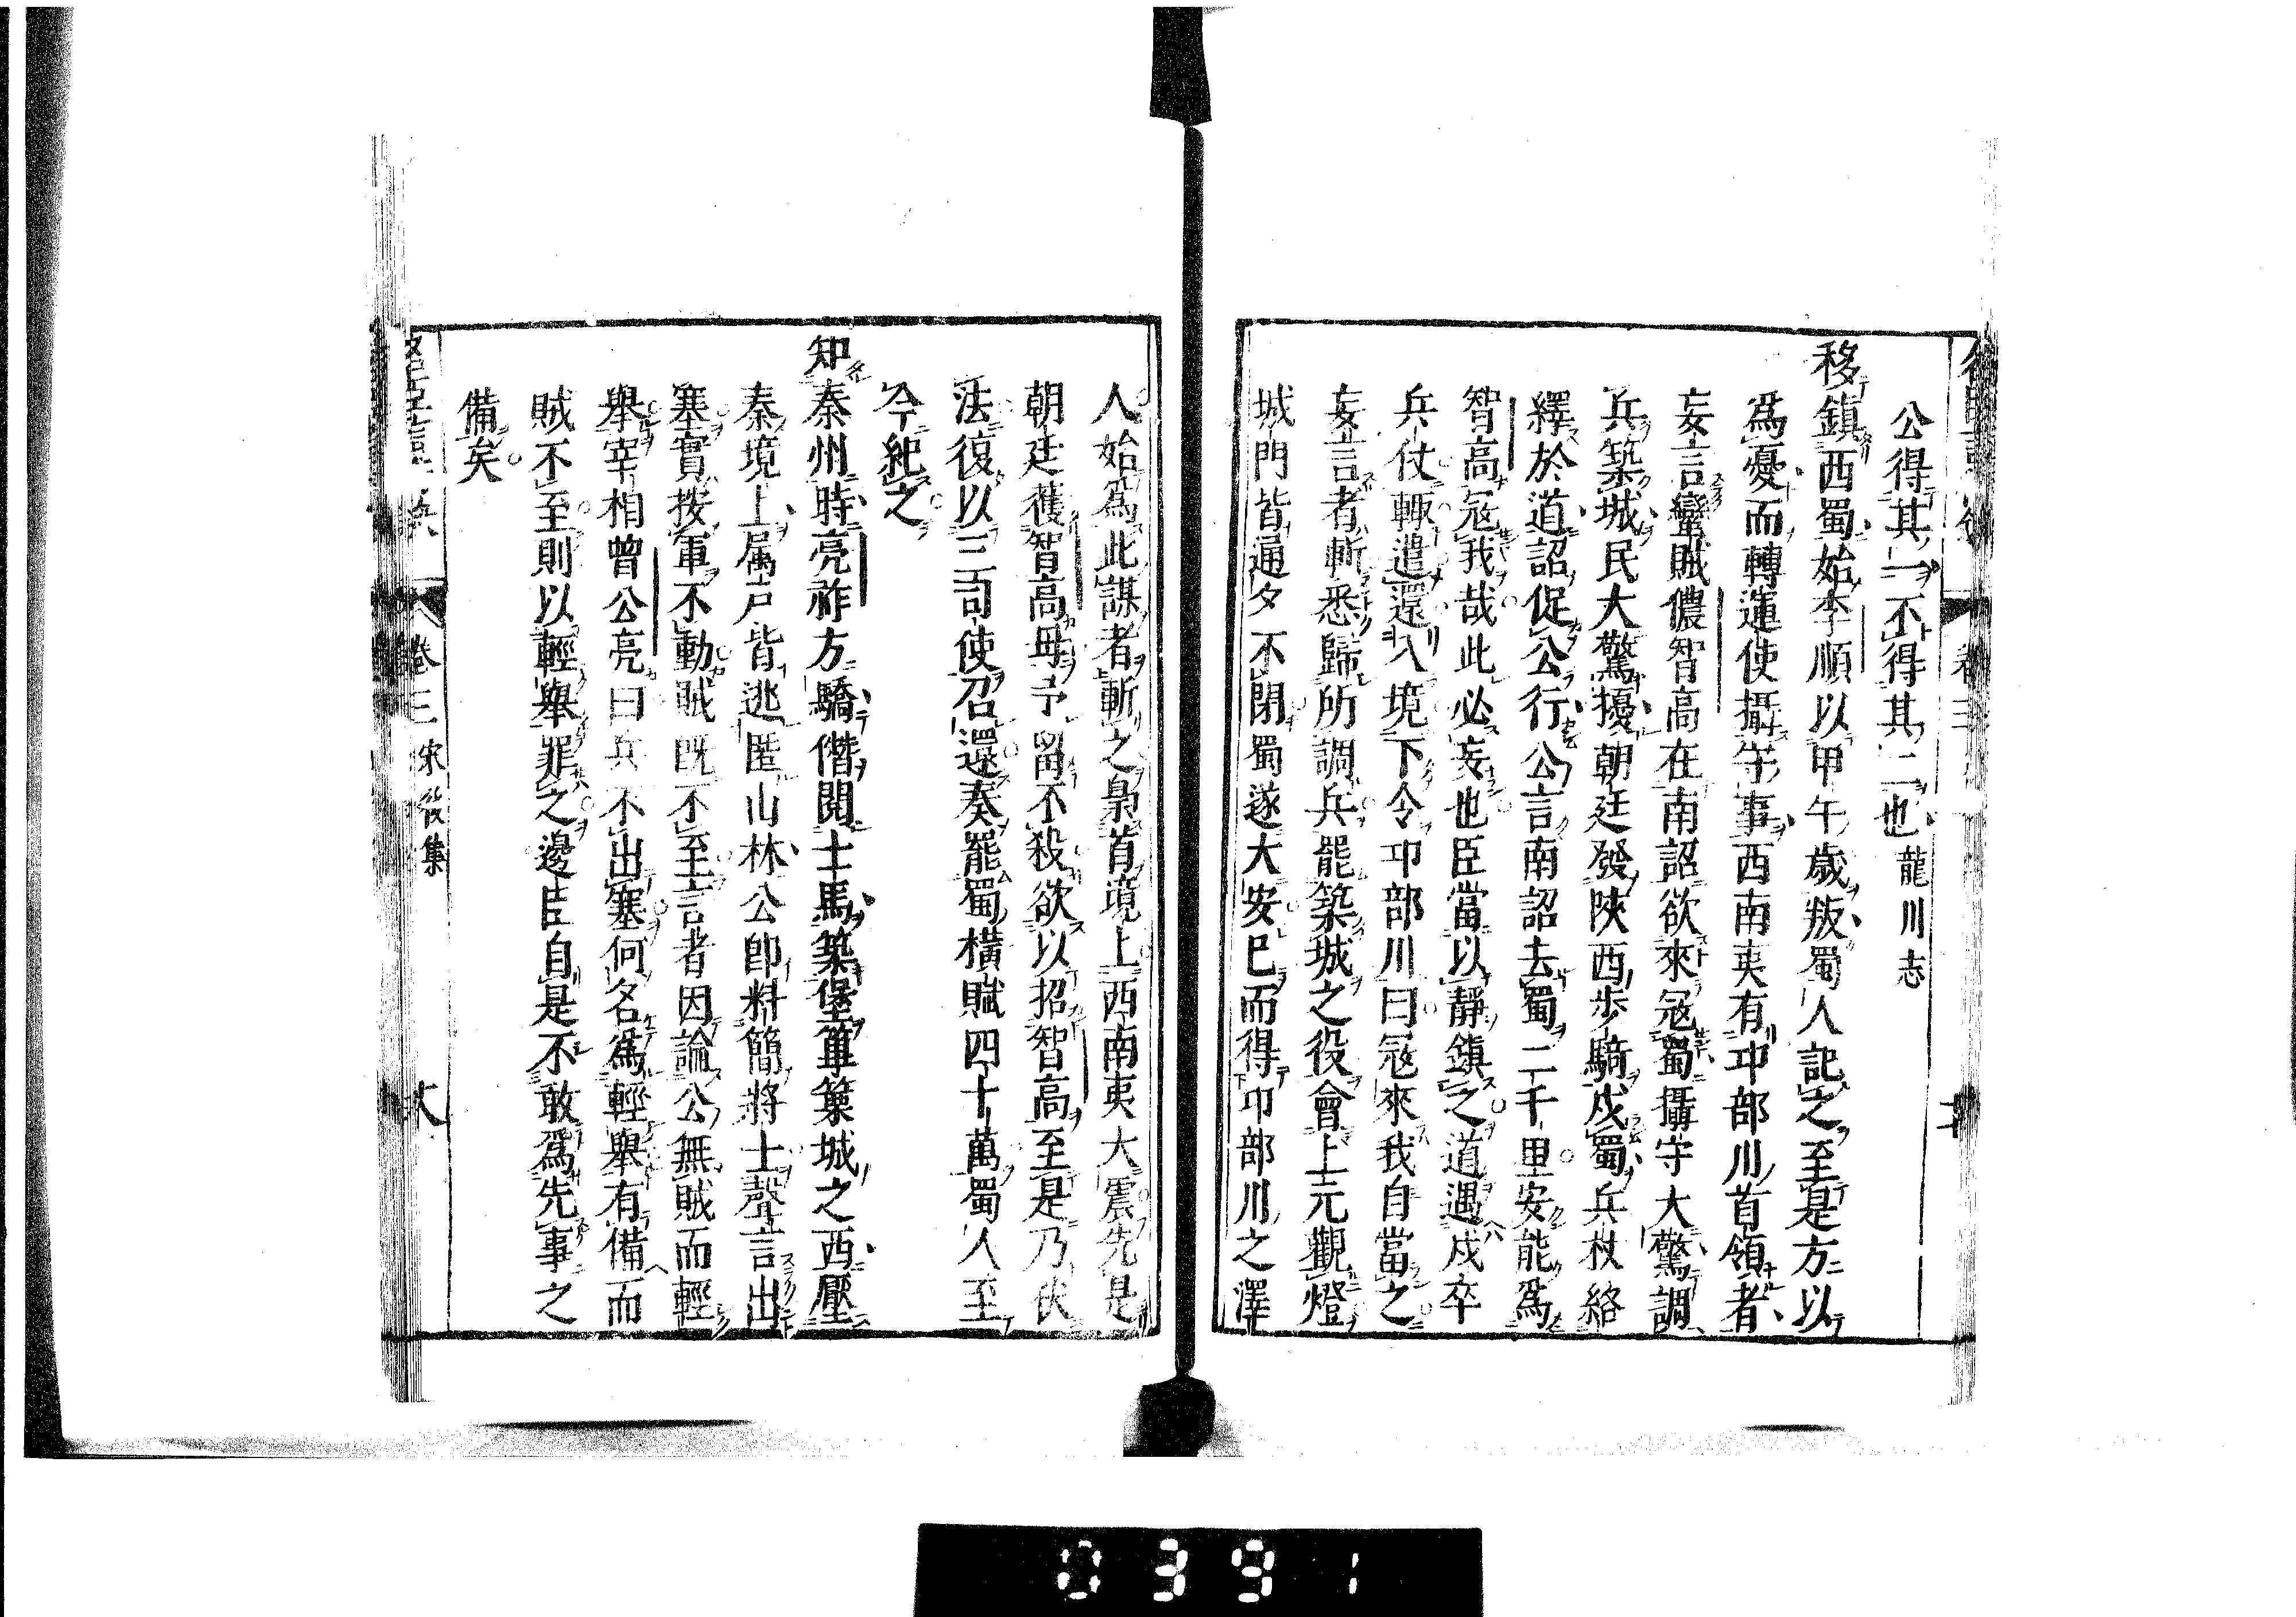 公得其一不得其二也龍川志
移鎮西蜀始李順以甲午歲叛蜀人記之至是方以
爲憂而轉運使攝守事西南夷有卭部川首領者
妄言蠻賊儂智高在南詔欲來冦蜀攝守大驚調
兵築城民大驚擾朝廷發陜西步騎戍蜀兵杖絡
繹於道詔促公行公言南詔去蜀二千里安能爲
智高冦我哉此必妄也臣當以靜鎮之道遇戍卒
兵仗輙遣還入境下令卭部川曰冦來我自當之
妄言者斬悉歸所調兵罷築城之役會上元觀燈
城門皆通夕不閉蜀遂大安已而得卭部川之澤
人始爲此謀者斬之梟首境上西南夷大震先是
朝廷獲智高母子留不殺欲以招智高至是乃伏
法復以三司使召還奏罷蜀橫賦四十萬蜀人至
今紀之
知秦州時亮祚方驕僭閱士馬築堡篳篥城之西壓
秦境上属戸皆逃匿山林公卽料簡將士聲言出
塞實按軍不動賊既不至言者因論公無賊而輕
舉宰相曾公亮曰兵不出塞何名爲輕舉有備而
賊不至則以輕舉罪之邊臣自是不敢爲先事之
備矣
卷三
宋後集
0391